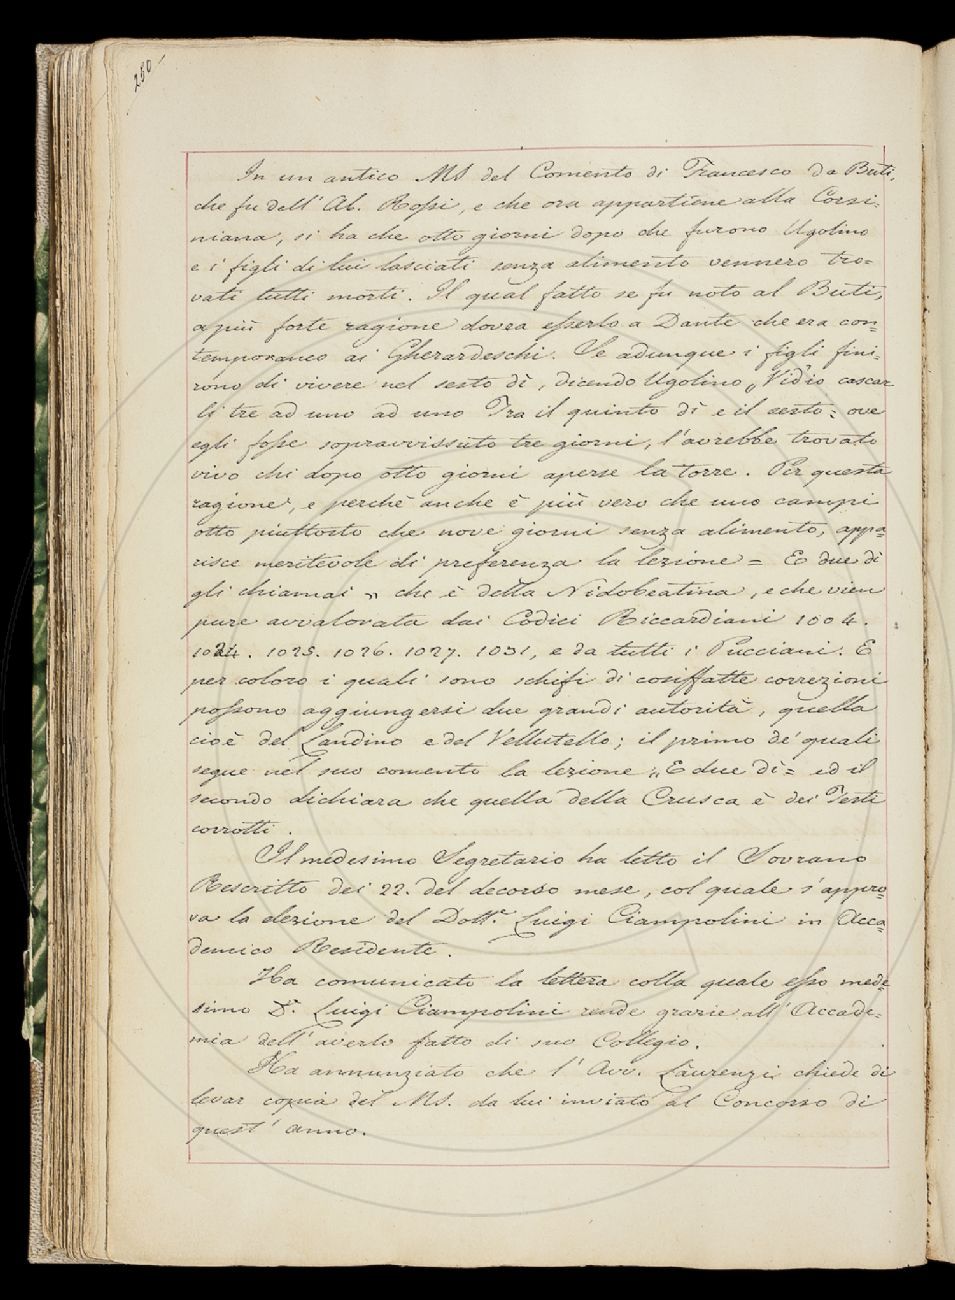 250
In un antico MS del Comento di Francesco da Buti,
che fu dell' Ab. Rossi, e che ora appartiene alla Corsi-
niana, si ha che otto giorni dopo che furono Ugolino
e i figli di lui lasciati senza alimento vennero tro=
vati tutti morti. Il qual fatto se fu noto al Buti,
a più forte ragione dovea esserlo a Dante che era con=
temporaneo ai Gherardeschi. Se adunque i figli fini-
rono di vivere nel sesto dì, dicendo Ugolino „ Vid'io cascar
li tre ad uno ad uno Tra il quinto dì e il sesto: ove
egli fosse sopravvissuto tre giorni, l'avrebbe trovato
vivo chi dopo otto giorni aperse la torre. Per questa
ragione, e perchè anche è più vero che uno campi
otto piuttosto che nove giorni senza alimento, appa=
risce meritevole di preferenza la lezione = E due dì
gli chiamai „ che è della Nidobeatina, e che vien
pure avvalorata dai Codici Riccardiani 1004.
1024. 1025. 1026. 1027. 1031, e da tutti i Pucciani. E
per coloro i quali sono schifi di cosiffatte correzioni
possono aggiungersi due grandi autorità, quella
cioè del Landino e del Vellutello; il primo de' quali
segue nel suo comento la lezione „ E due dì = ed il
secondo dichiara che quella della Crusca è dei Testi
corrotti.
Il medesimo Segretario ha letto il Sovrano
Rescritto dei 22. del decorso mese, col quale s'appro=
va la elezione del Dott.r Luigi Ciampolini in Acca=
demico Residente.
Ha comunicato la lettera colla quale esso mede-
simo D.r Luigi Ciampolini rende grazie all' Accade=
mia dell' averlo fatto di suo Collegio.
Ha annunziato che l' Avv. Laurenzi chiede di
levar copia del MS. da lui inviato al Concorso di
quest' anno.